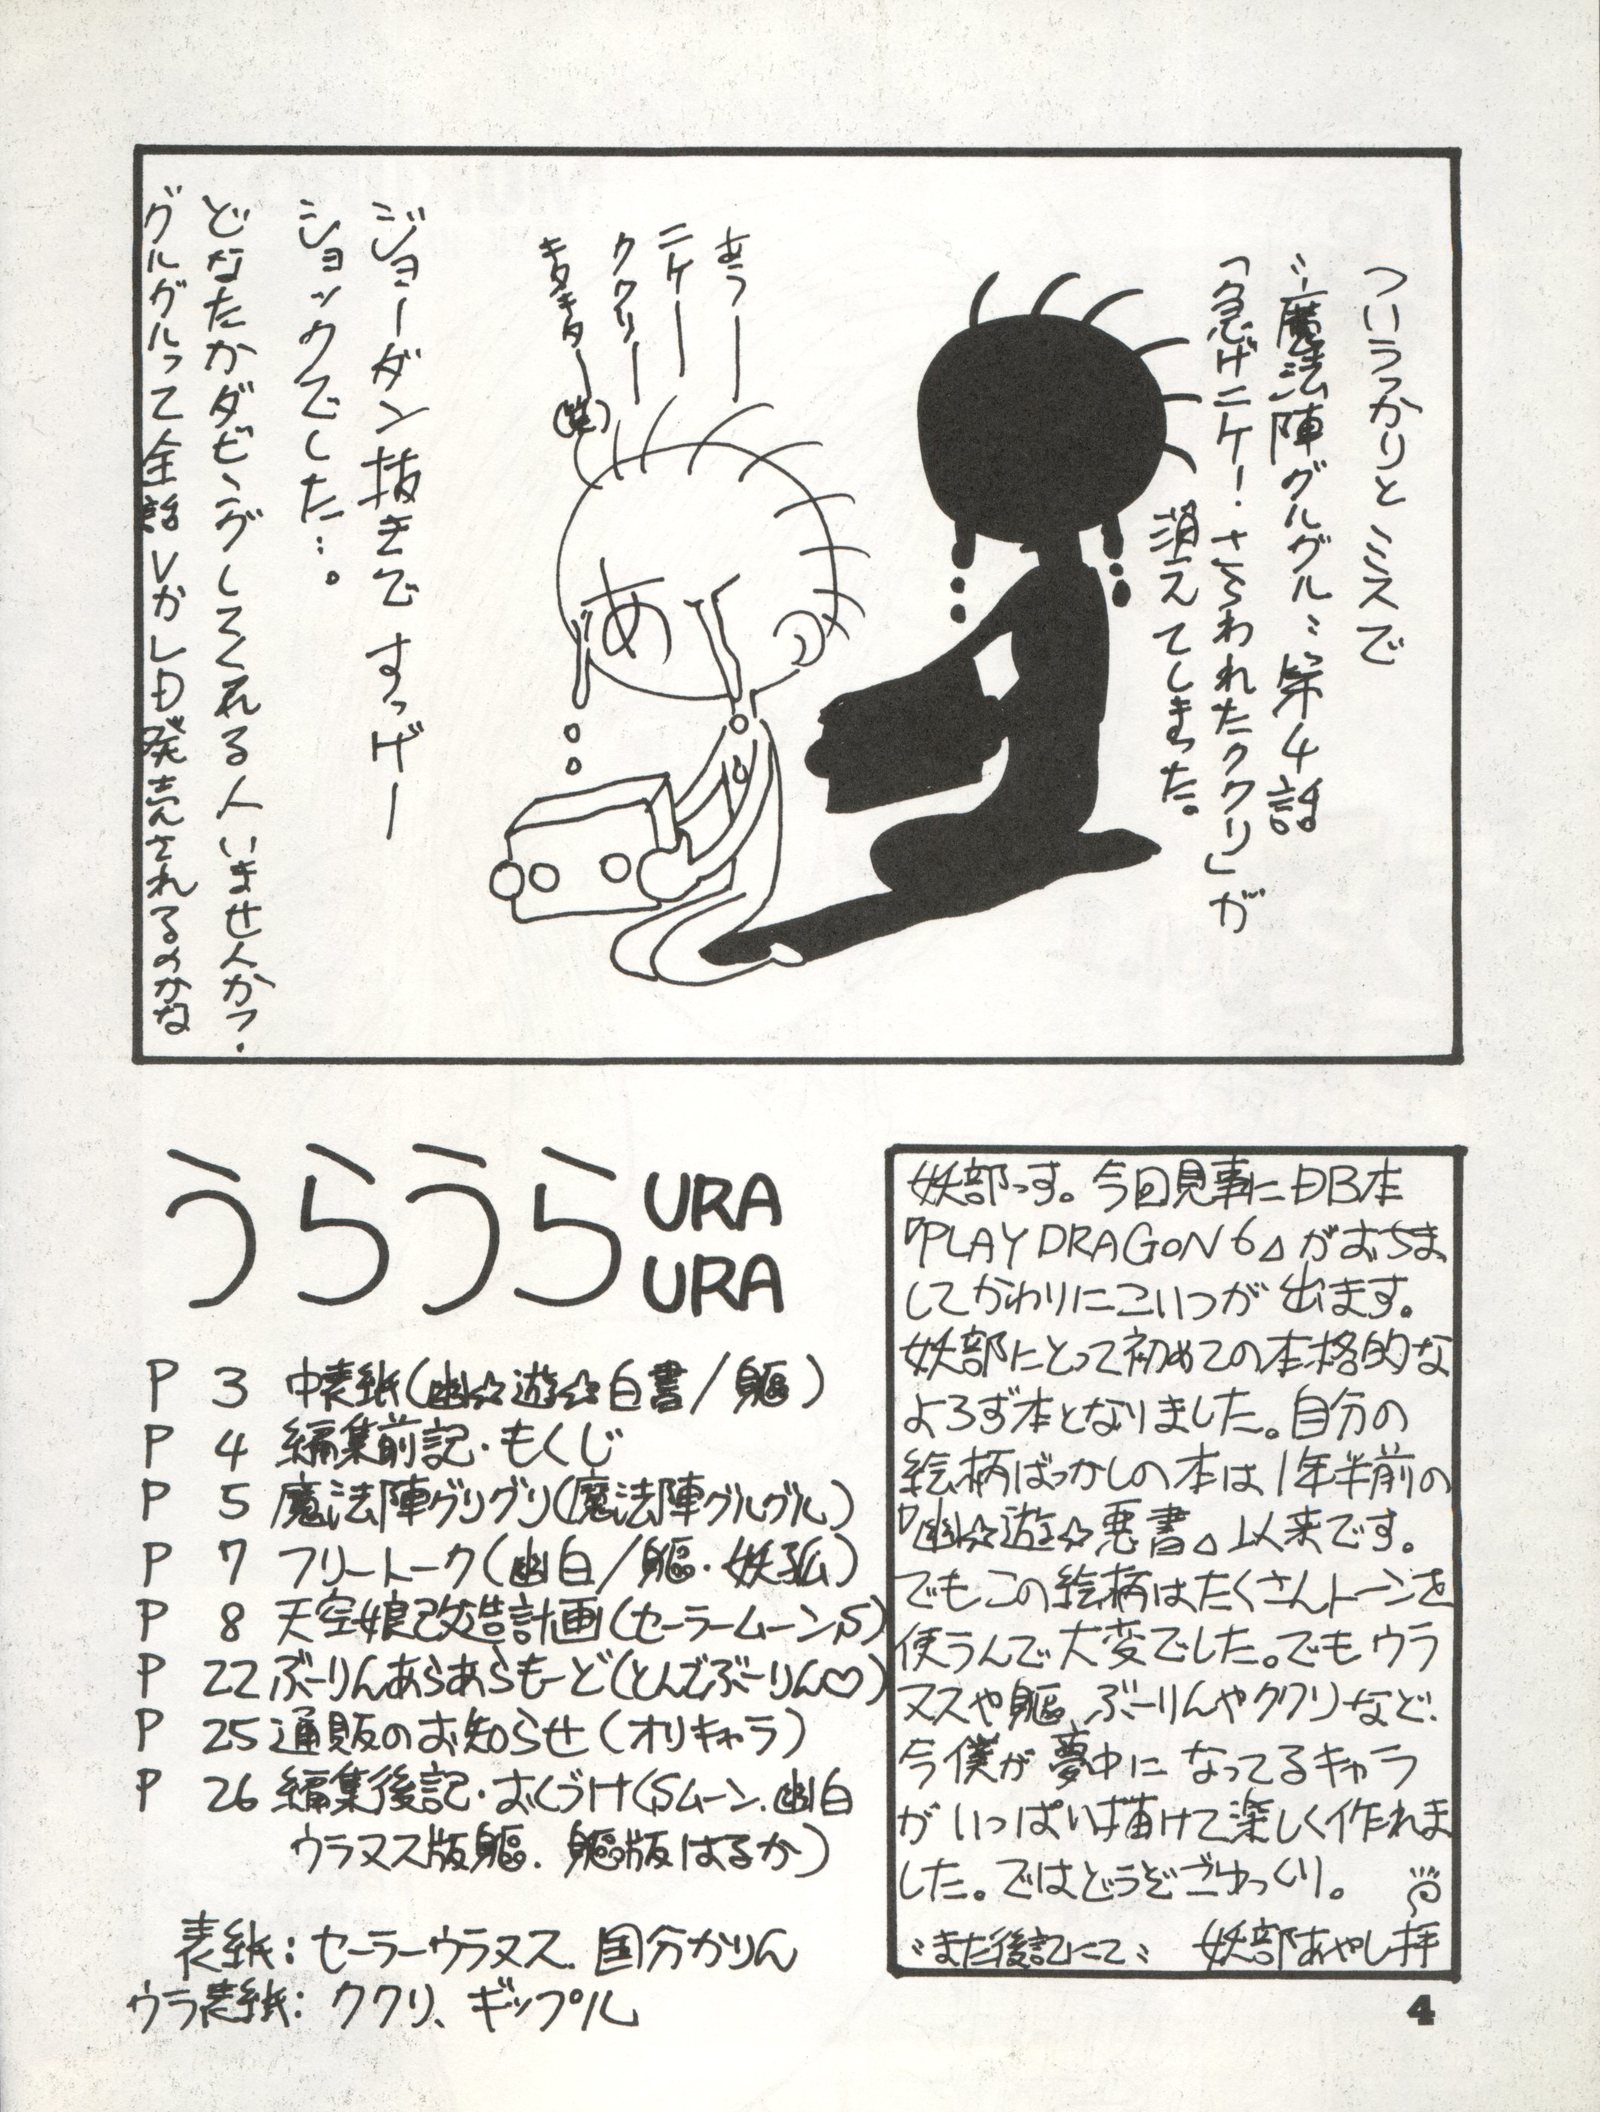 ついうっかりとミスで
〝魔法陣グルグル〟第4話
「急げニケー!さらわれたククリ」が
消えてしまった。
あうー
ニケー
ククリー
キタキター(笑)
あ
ジョーダン抜きですっげー
ショックでした…。
どなたかダビングしてくれる人いませんかっ.
グルグルって全話VかLD発売されるのかな
うらうら URA
URA
P 3 中表紙(幽☆遊☆白書/軀)
P 4 編集前記・もくじ
P 5 魔法陣グリグリ(魔法陣グルグル)
P 7 フリートーク(幽白/軀・妖狐)
P 8 天空娘改造計画(セーラームーンS)
P 22 ぶーりんあらあらもーど(とんでぶーりん♡)
P 25 通販のお知らせ(オリキャラ)
P 26 編集後記・おくづけ(Sムーン、幽白
ウラヌス版軀、軀版はるか)
表紙:セーラーウラヌス、国分かりん
ウラ表紙:ククリ、ギップル
妖部っす。今回見事にDB本
『PLAY DRAGON 6』がおちま
してかわりにこいつが出ます。
妖部にとって初めての本格的な
よろず本となりました。自分の
絵柄ばっかしの本は1年半前の
『幽☆遊☆悪書』以来です。
でもこの絵柄はたくさんトーンを
使うんで大変でした。でもウラ
ヌスや軀、ぶーりんやククリなど、
今僕が夢中になってるキャラ
がいっぱい描けて楽しく作れま
した。ではどうぞごゆっくり。
〝また後記にて〟 妖部あやし拝
4